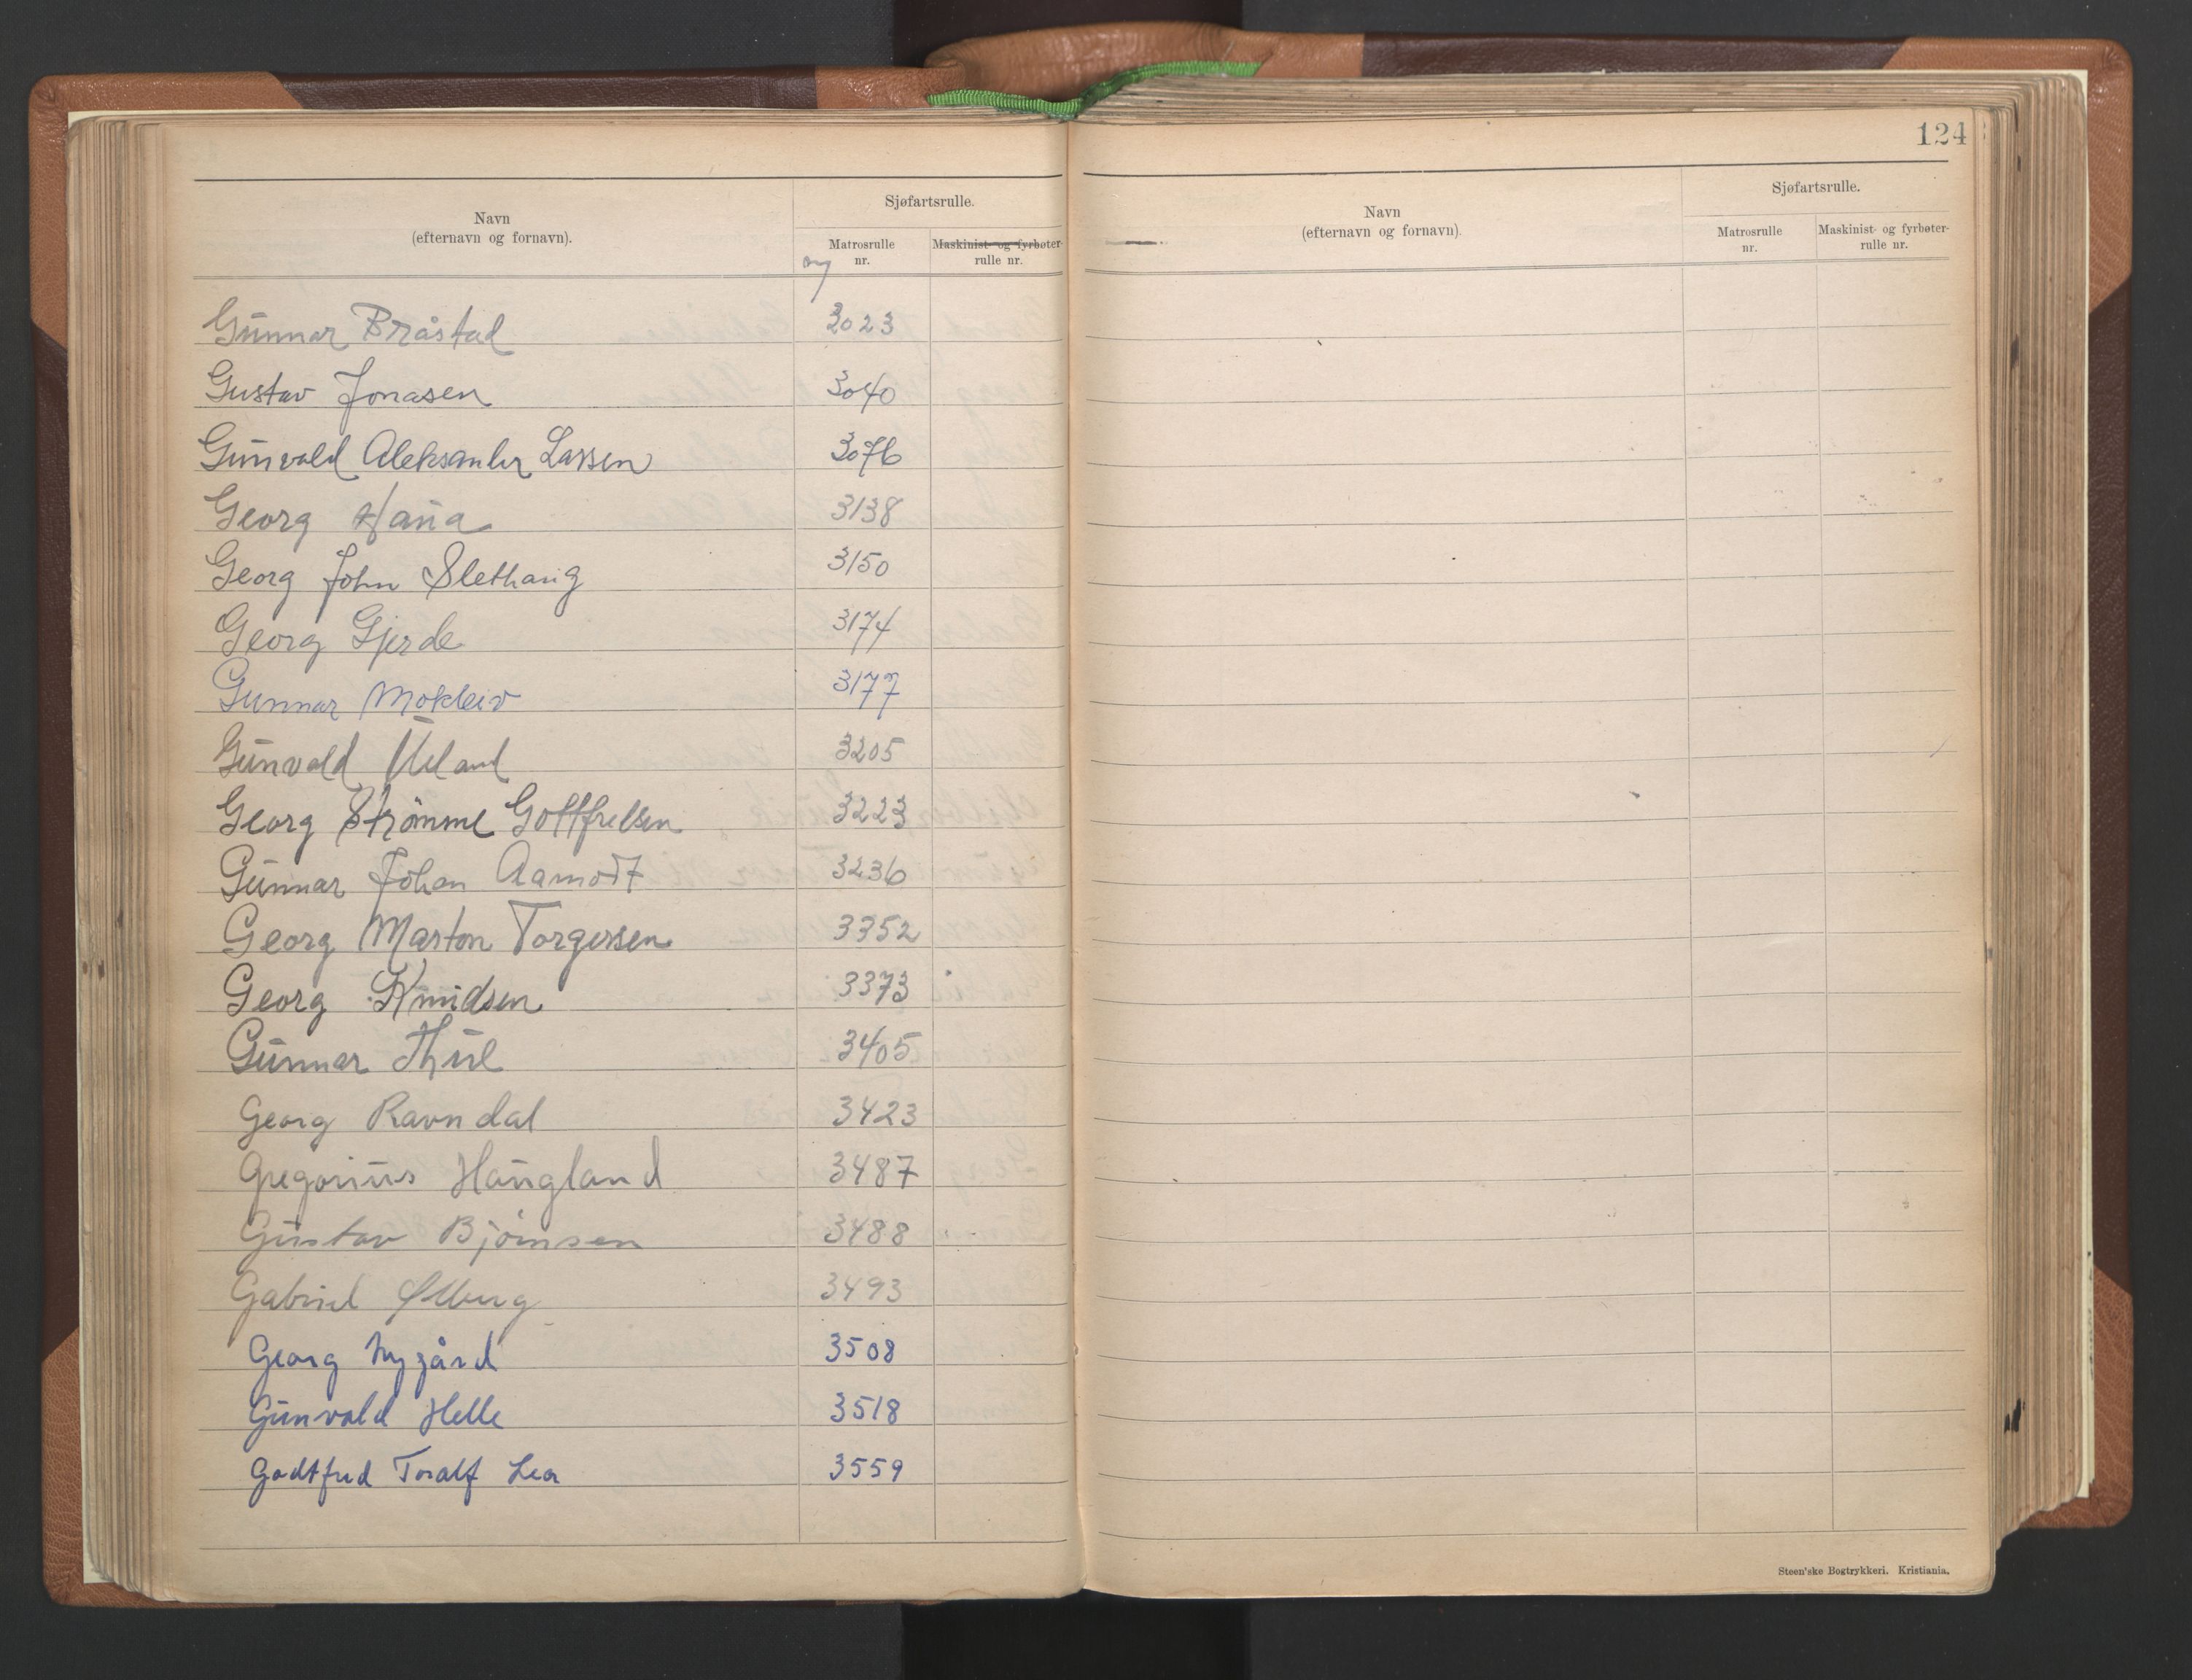 124
Navn
(efternavn og fornavn).
Sjøfartsrulle.
Matrosrulle
nr.
Maskinist- og fyrbøter-
rulle nr.
ny
Gunnar Bråstad 3023
Gustav Jonasen 3040
Gunvald Aleksander Larsen 3076
Georg Hana 3138
Georg John Slethaug 3150
Georg Gjerde 3174
Gunnar Mokleiv 3177
Gunvald Ueland 3205
Georg Strømme Gottfredsen 3223
Gunnar Johan Aamodt 3236
Georg Marton Torgersen 3352
Georg Knudsen 3373
Gunnar Thul 3405
Georg Ravndal 3423
Gregorius Haugland 3487
Gustav Bjørnsen 3488
Gabriel Ølberg 3493
Georg Nygård 3508
Gunvald Helle 3518
Godtfred Toralf Lea 3559
Navn
(efternavn og fornavn).
Sjøfartsrulle.
Matrosrulle
nr.
Maskinist- og fyrbøter-
rulle nr.
Steen'ske Bogtrykkeri. Kristiania.